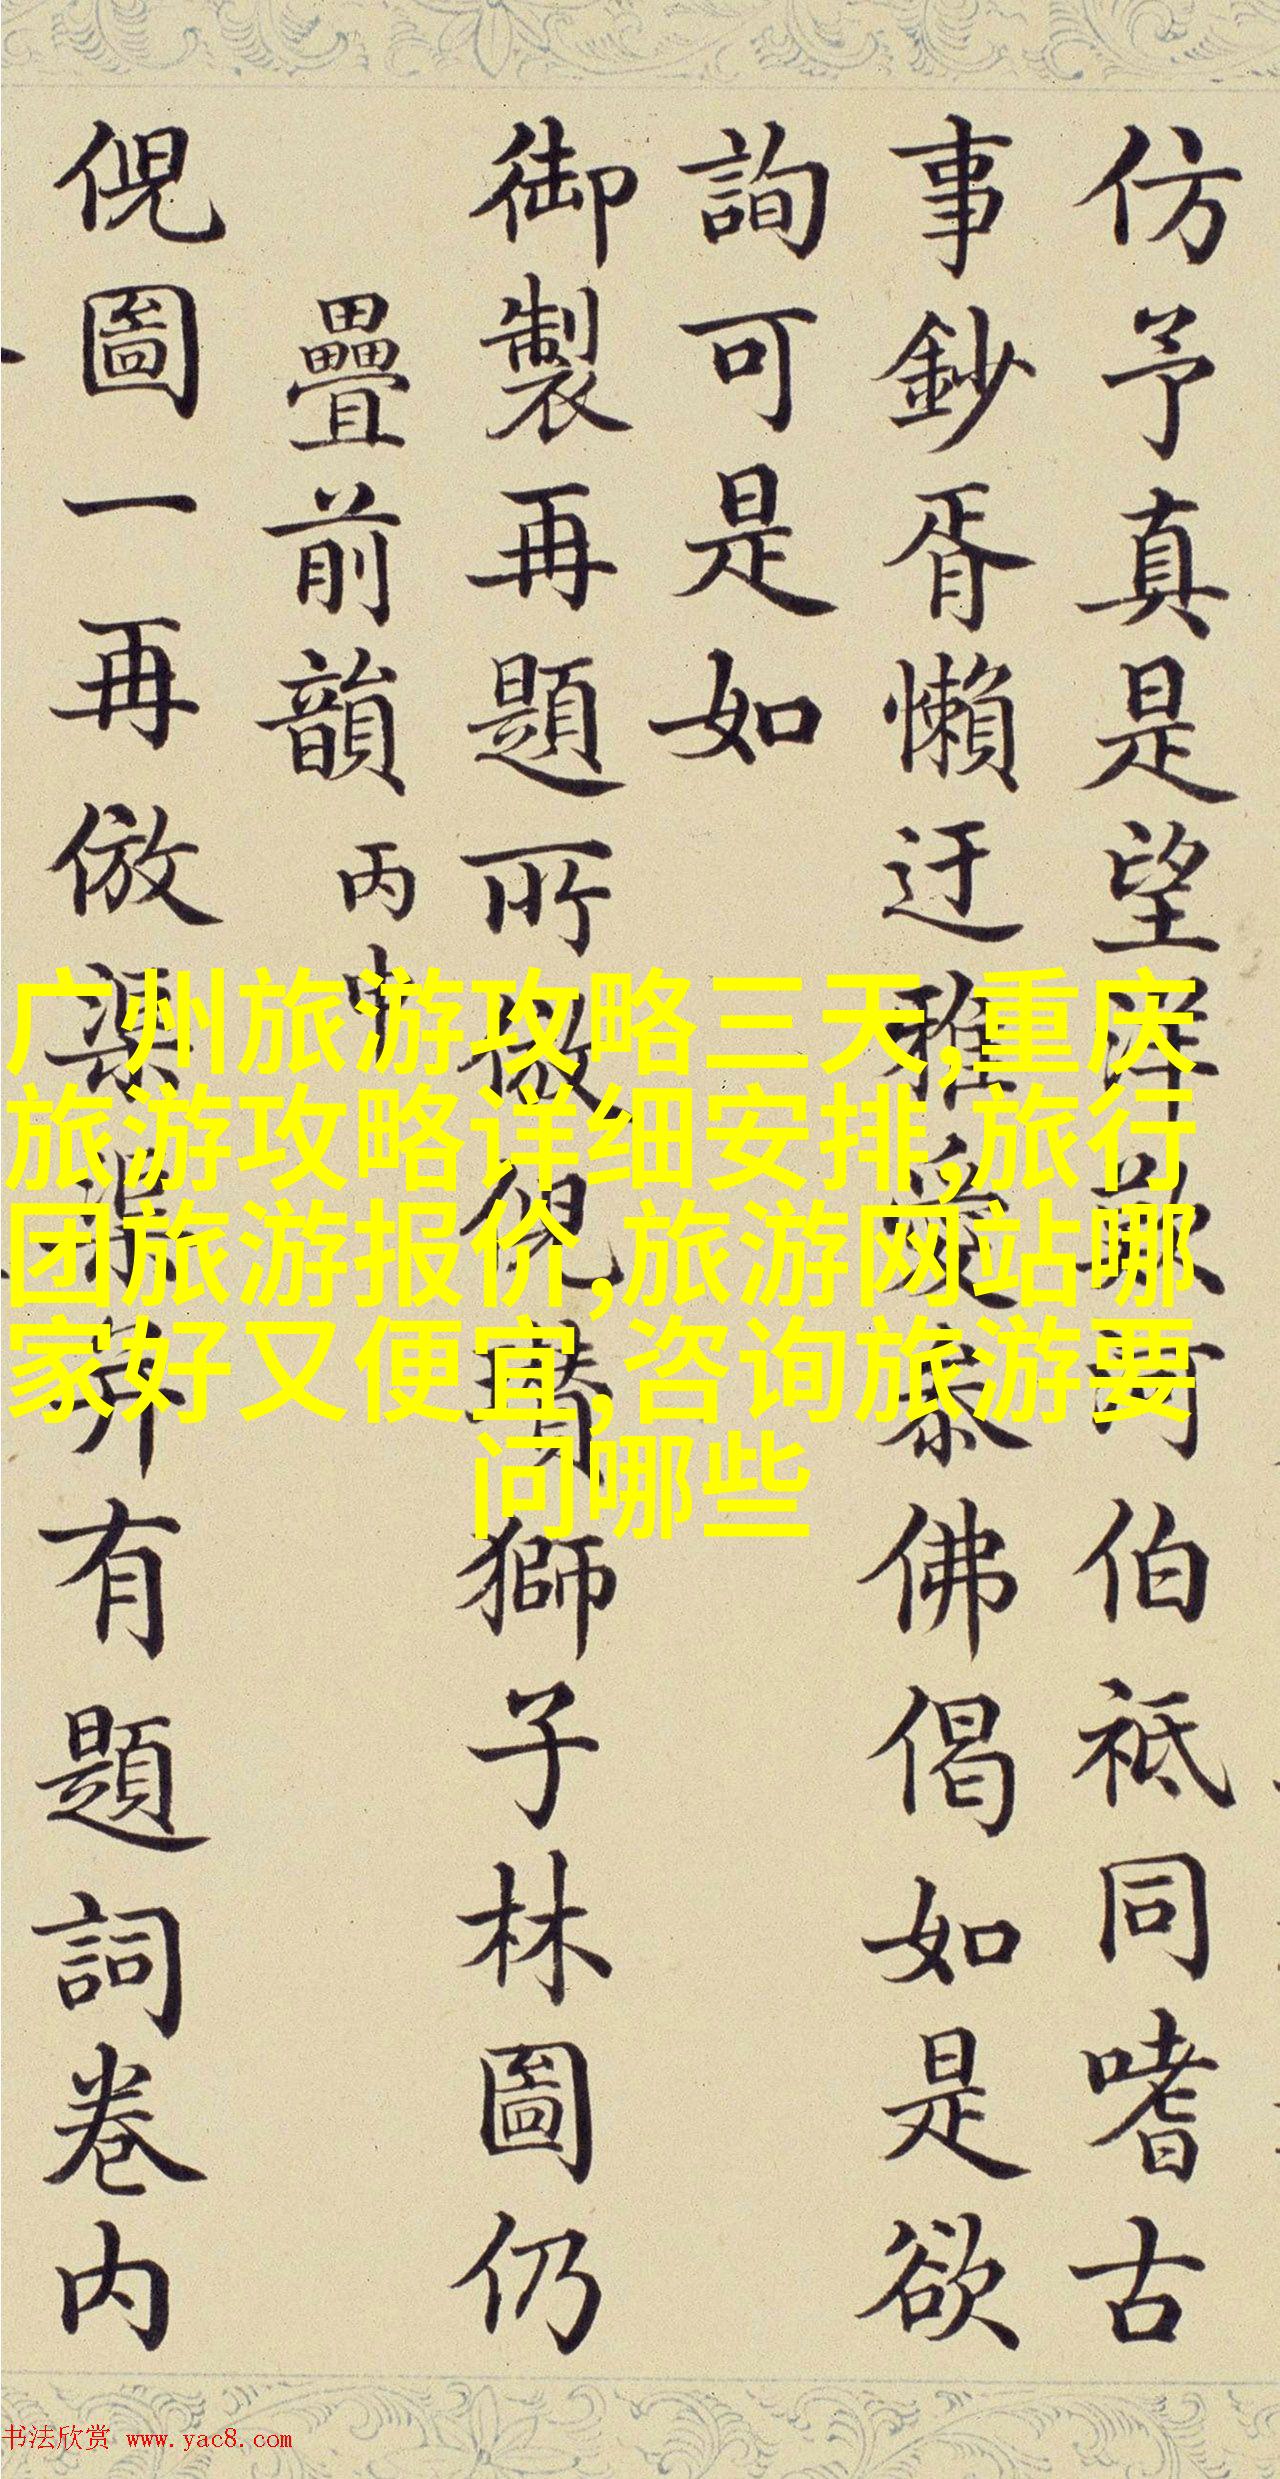 仿予真是望洋歎河伯祗同嗜古
事鈔胥懶迂雅愛參佛偈如是欲
詢可是如
御製再題所倣倪瓚獅子林圖仍
疊前韻丙申
倪圖一再倣渠渠弆有題詞卷内
广州旅游攻略三天,重庆
旅游攻略详细安排,旅行
团旅游报价,旅游网站哪
家好又便宜,咨询旅游要
问哪些
书法欣赏 www.yac8.com